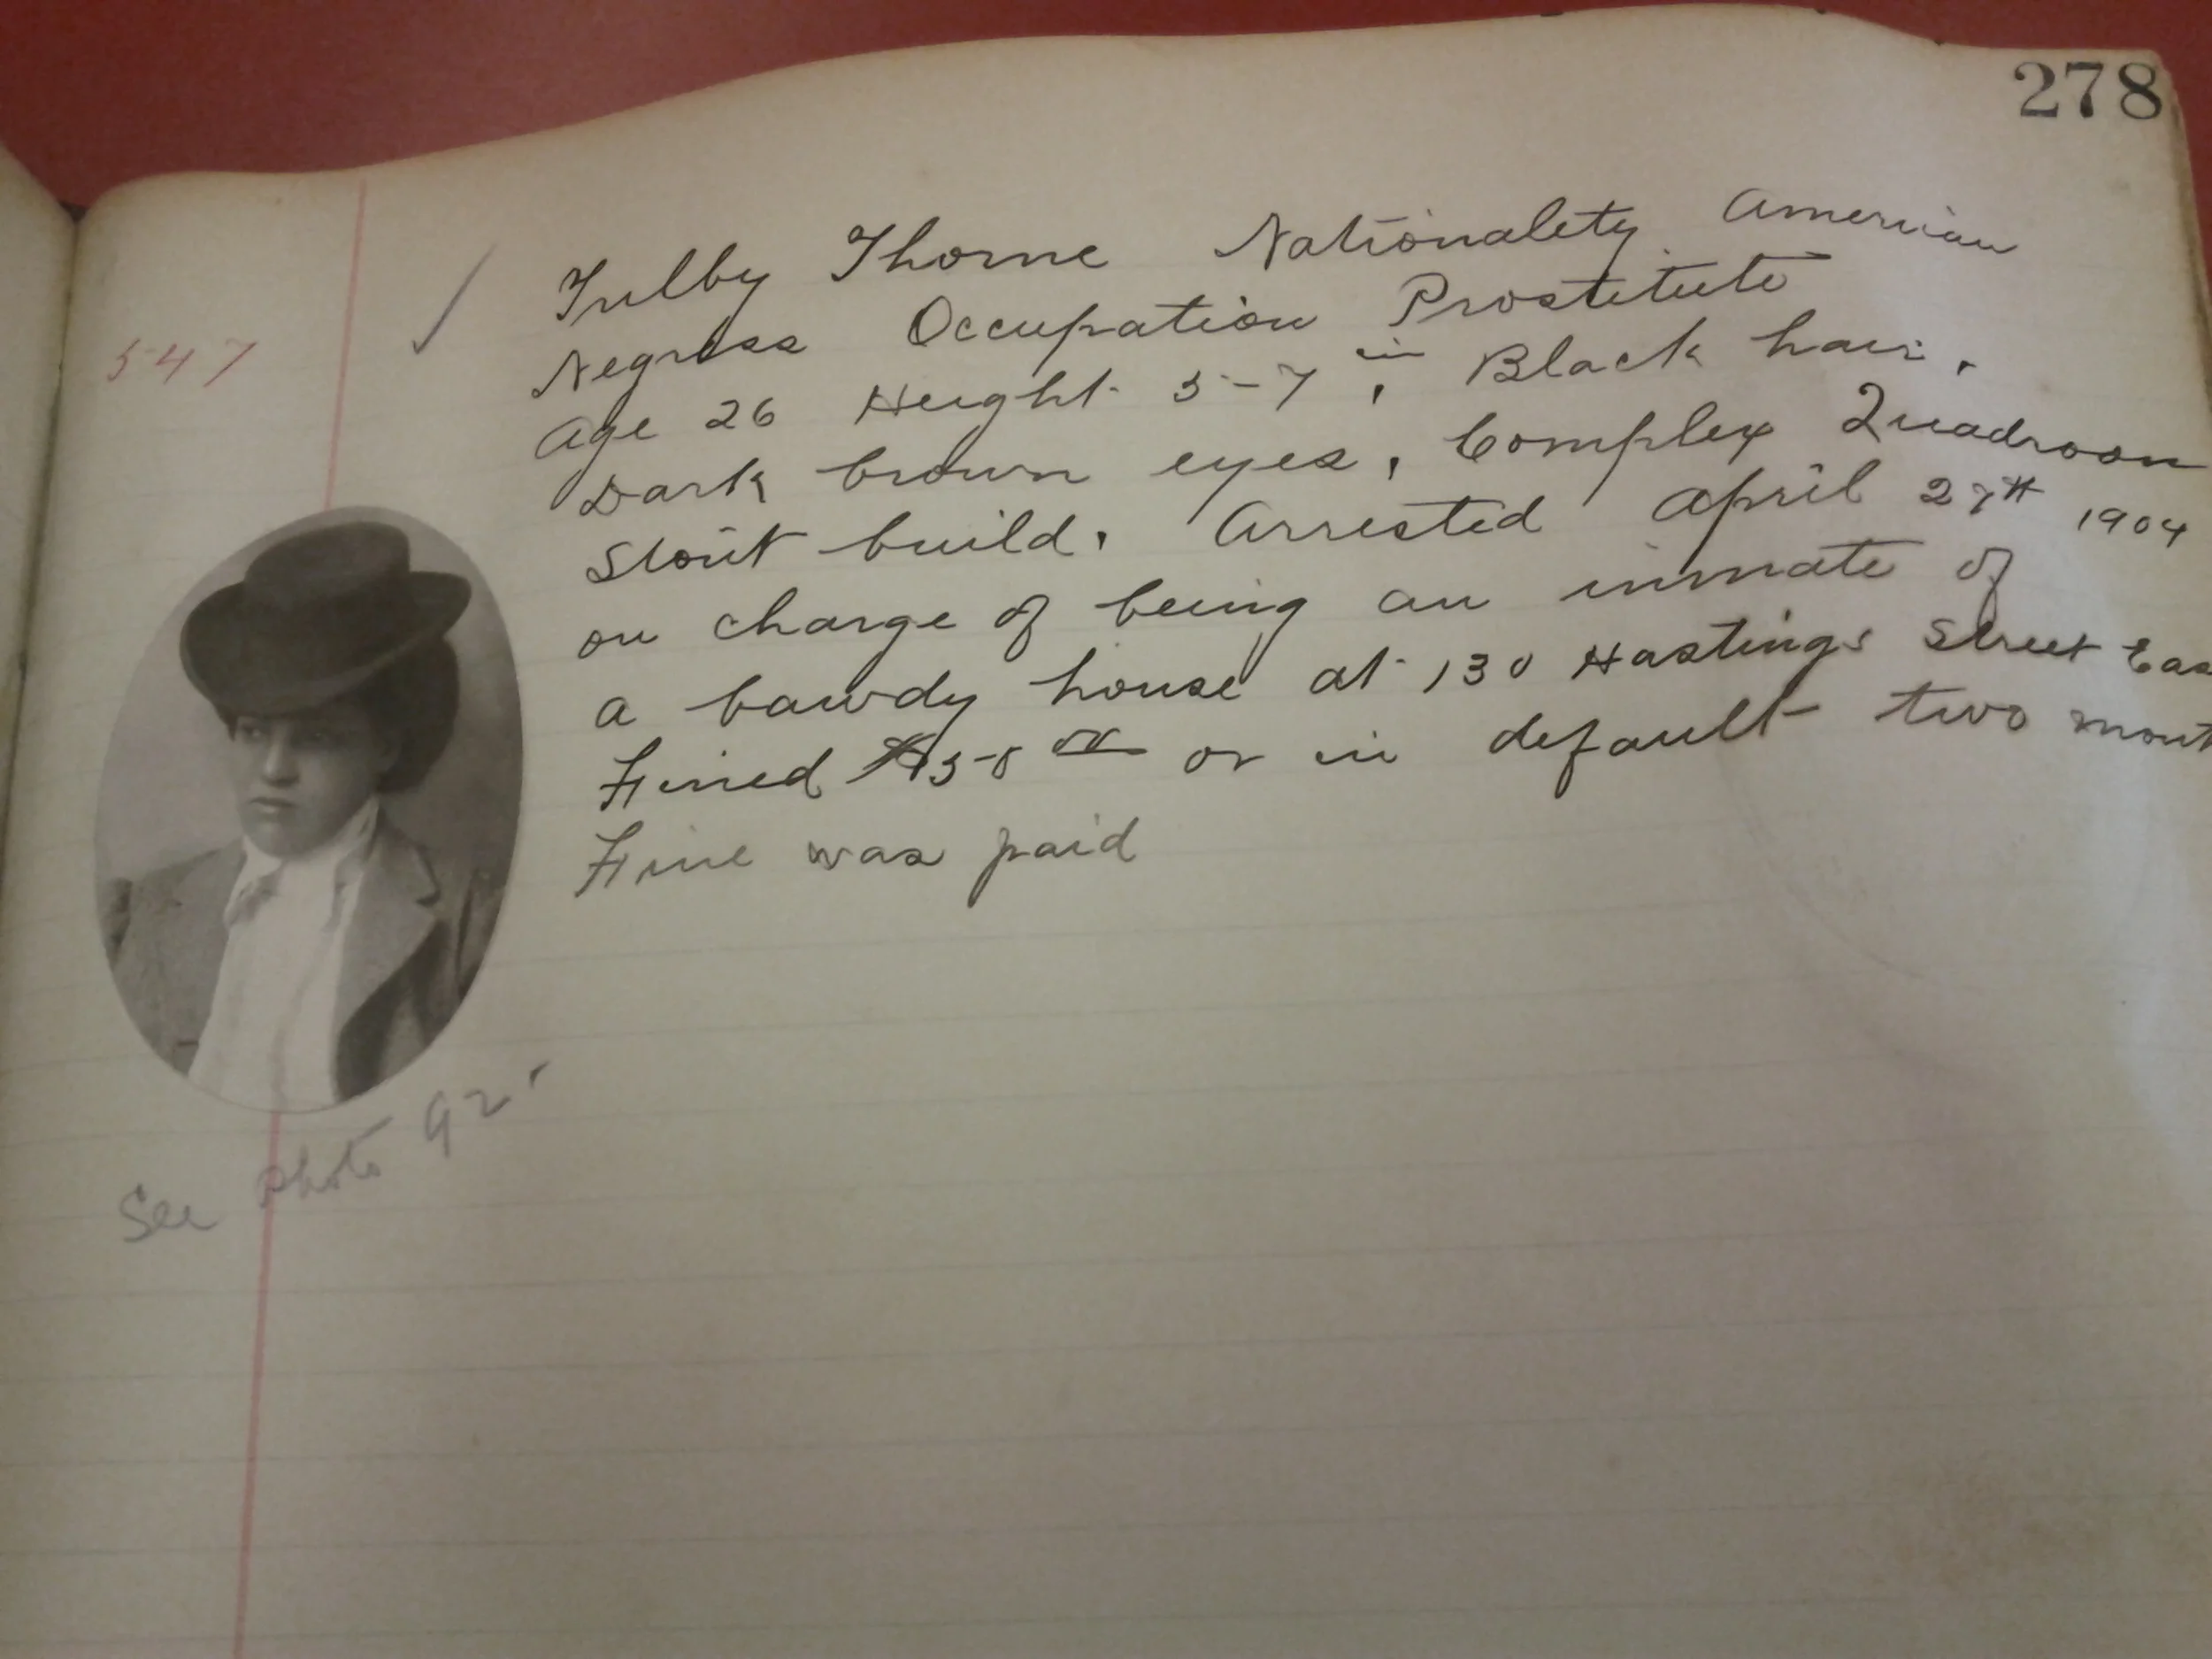 278
547
Trilby Thorne Nationality American
Negress Occupation Prostitute
Age 26 Height 5-7 in, Black hair,
Dark brown eyes, Complex Quadroon
Stout build. Arrested April 27th 1904
on charge of being an inmate of
a bawdy house at 130 Hastings Street Eas
Fined $50 00 or in default two mont
Fine was paid
See photo 92